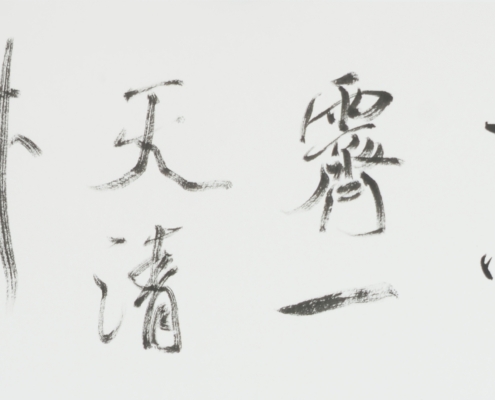 霽一
天清